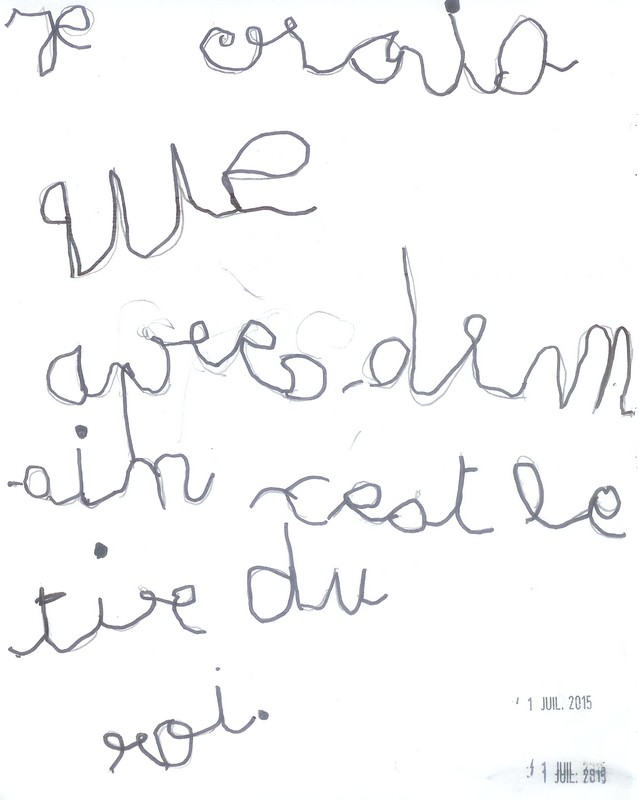 je crois
que
après-dem
-ain c'est le
tire du
roi.
1 JUIL. 2015
1 JUIL. 2015